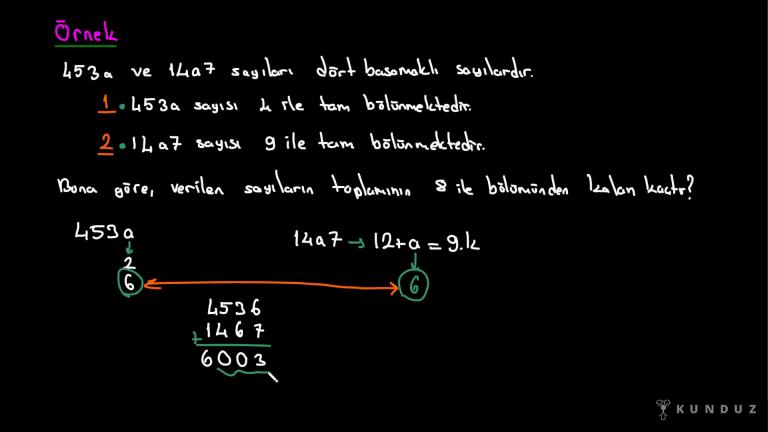 Örnek
453a ve 14a7 sayıları dört basamaklı sayılardır.
1. 453a sayısı 4 ile tam bölünmektedir.
2. 14a7 sayısı 9 ile tam bölünmektedir.
Buna göre, verilen sayıların toplamının 8 ile bölümünden kalan kaçtır?
453a
14a7 → 12+a = 9.k
2
6
6
4536
+ 1467
6003
KUNDUZ